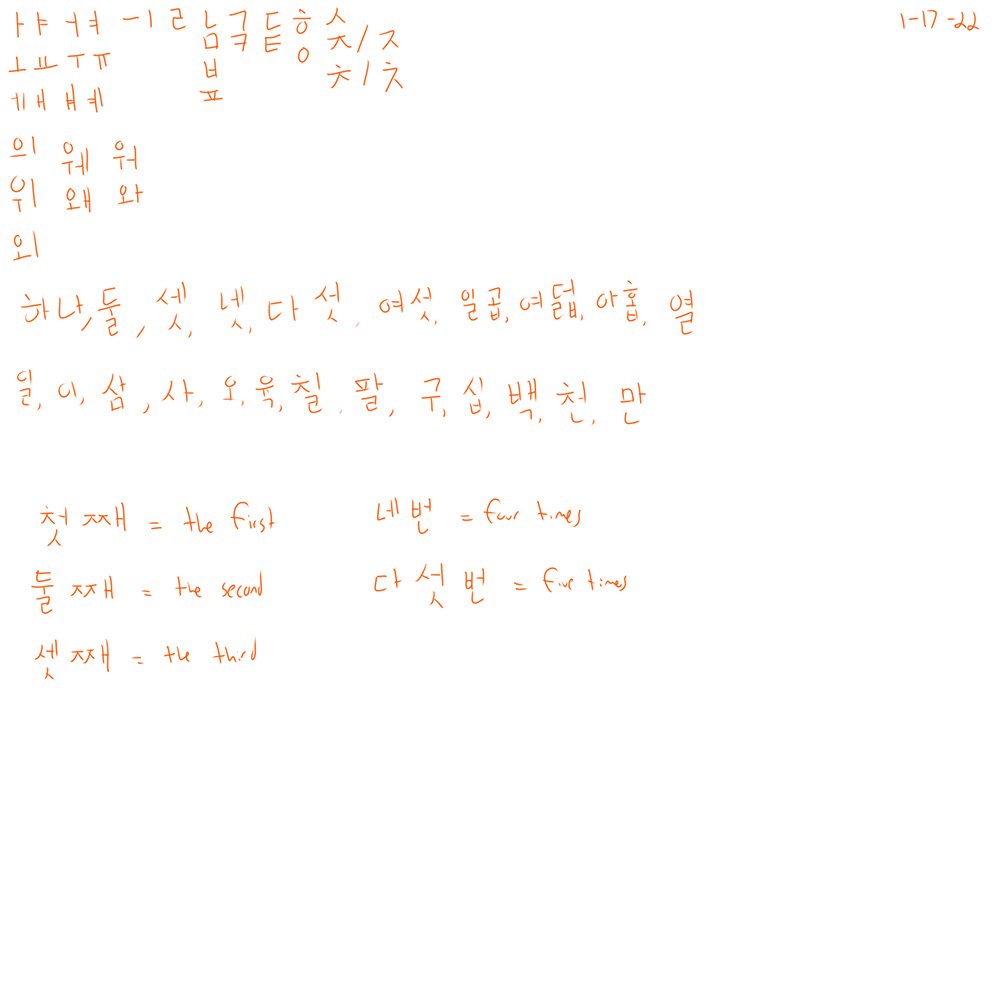 ㅏ ㅑ ㅓ ㅕ ㅡ ㅣ ㄹ ㄴ ㄱ ㄷ ㅎ ㅅ 1-17-22
ㅁ ㅋ ㅌ ㅇ ㅈ / ㅈ
ㅗ ㅛ ㅜ ㅠ ㅂ ㅊ / ㅊ
ㅔ ㅐ ㅒ ㅖ ㅍ
의 웨 워
위 왜 와
외
하나, 둘, 셋, 넷, 다섯, 여섯, 일곱, 여덟, 아홉, 열
일, 이, 삼, 사, 오, 육, 칠, 팔, 구, 십, 백, 천, 만
첫 째 = the first 네 번 = four times
둘 째 = the second 다 섯 번 = five times
셋 째 = the third